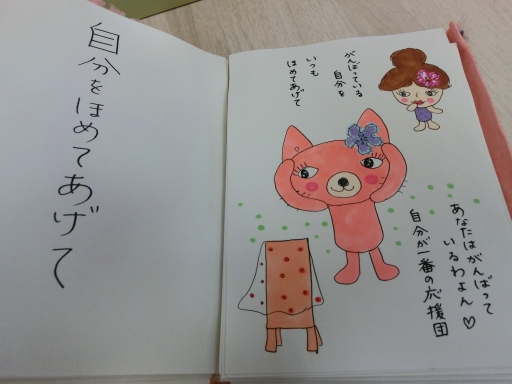 自分をほめてあげて
がんばっている
自分を
いつも
ほめてあげて
あなたはがんばって
いるわよん♡
自分が一番の応援団